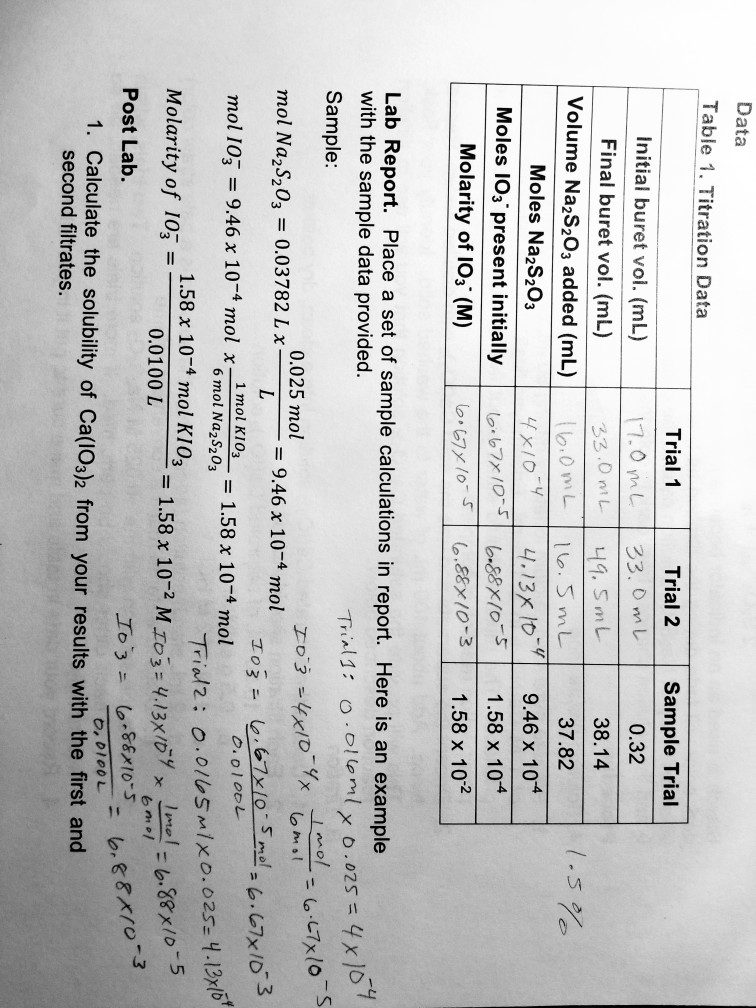 Data
Table 1. Titration Data
Trial 1 Trial 2 Sample Trial
Initial buret vol. (mL) 17.0 mL 33.0 mL 0.32
Final buret vol. (mL) 33.0 mL 49.5 mL 38.14
Volume Na₂S₂O₃ added (mL) 16.0 mL 16.5 mL 37.82 1.5 %
Moles Na₂S₂O₃ 4x10⁻⁴ 4.13x10⁻⁴ 9.46 x 10⁻⁴
Moles IO₃⁻ present initially 6.67x10⁻⁵ 6.88x10⁻⁵ 1.58 x 10⁻⁴
Molarity of IO₃⁻ (M) 6.67x10⁻⁵ 6.88x10⁻³ 1.58 x 10⁻²
Lab Report. Place a set of sample calculations in report. Here is an example
with the sample data provided.
Sample:
Trial 1: 0.016ml x 0.025 = 4x10⁻⁴
mol Na₂S₂O₃ = 0.03782 L x 0.025 mol / L = 9.46 x 10⁻⁴ mol
IO⁻3 = 4x10⁻⁴ x 1 mol / 6 mol = 6.67x10⁻⁵
mol IO₃⁻ = 9.46 x 10⁻⁴ mol x 1 mol KIO₃ / 6 mol Na₂S₂O₃ = 1.58 x 10⁻⁴ mol
IO3⁻ = 6.67x10⁻⁵ mol / 0.0100L = 6.67x10⁻³
Trial 2: 0.0165ml x 0.025 = 4.13x10⁻⁴
Molarity of IO₃⁻ = 1.58 x 10⁻⁴ mol KIO₃ / 0.0100 L = 1.58 x 10⁻² M
IO3⁻ = 4.13x10⁻⁴ x 1mol / 6mol = 6.88x10⁻⁵
IO⁻3 = 6.88x10⁻⁵ / 0.0100L = 6.88x10⁻³
Post Lab.
1. Calculate the solubility of Ca(IO₃)₂ from your results with the first and
second filtrates.